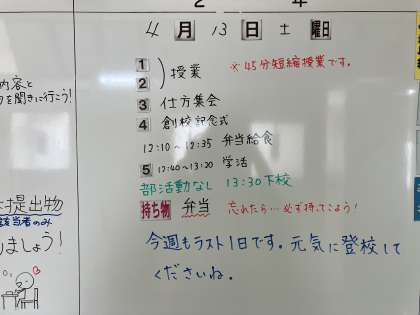 2 年
4 月 13 日 土 曜日
1
2
授業
※45分短縮授業です。
3 仕方集会
4 創校記念式
12:10〜12:35 弁当給食
5 12:40〜13:20 学活
部活動なし 13:30下校
持ち物 弁当 忘れたら…必ず持てこよう!
今週もラスト1日です。元気に登校して
くださいね。
内容と
を聞きに行こう!
提出物
該当者のみ
しましょう!